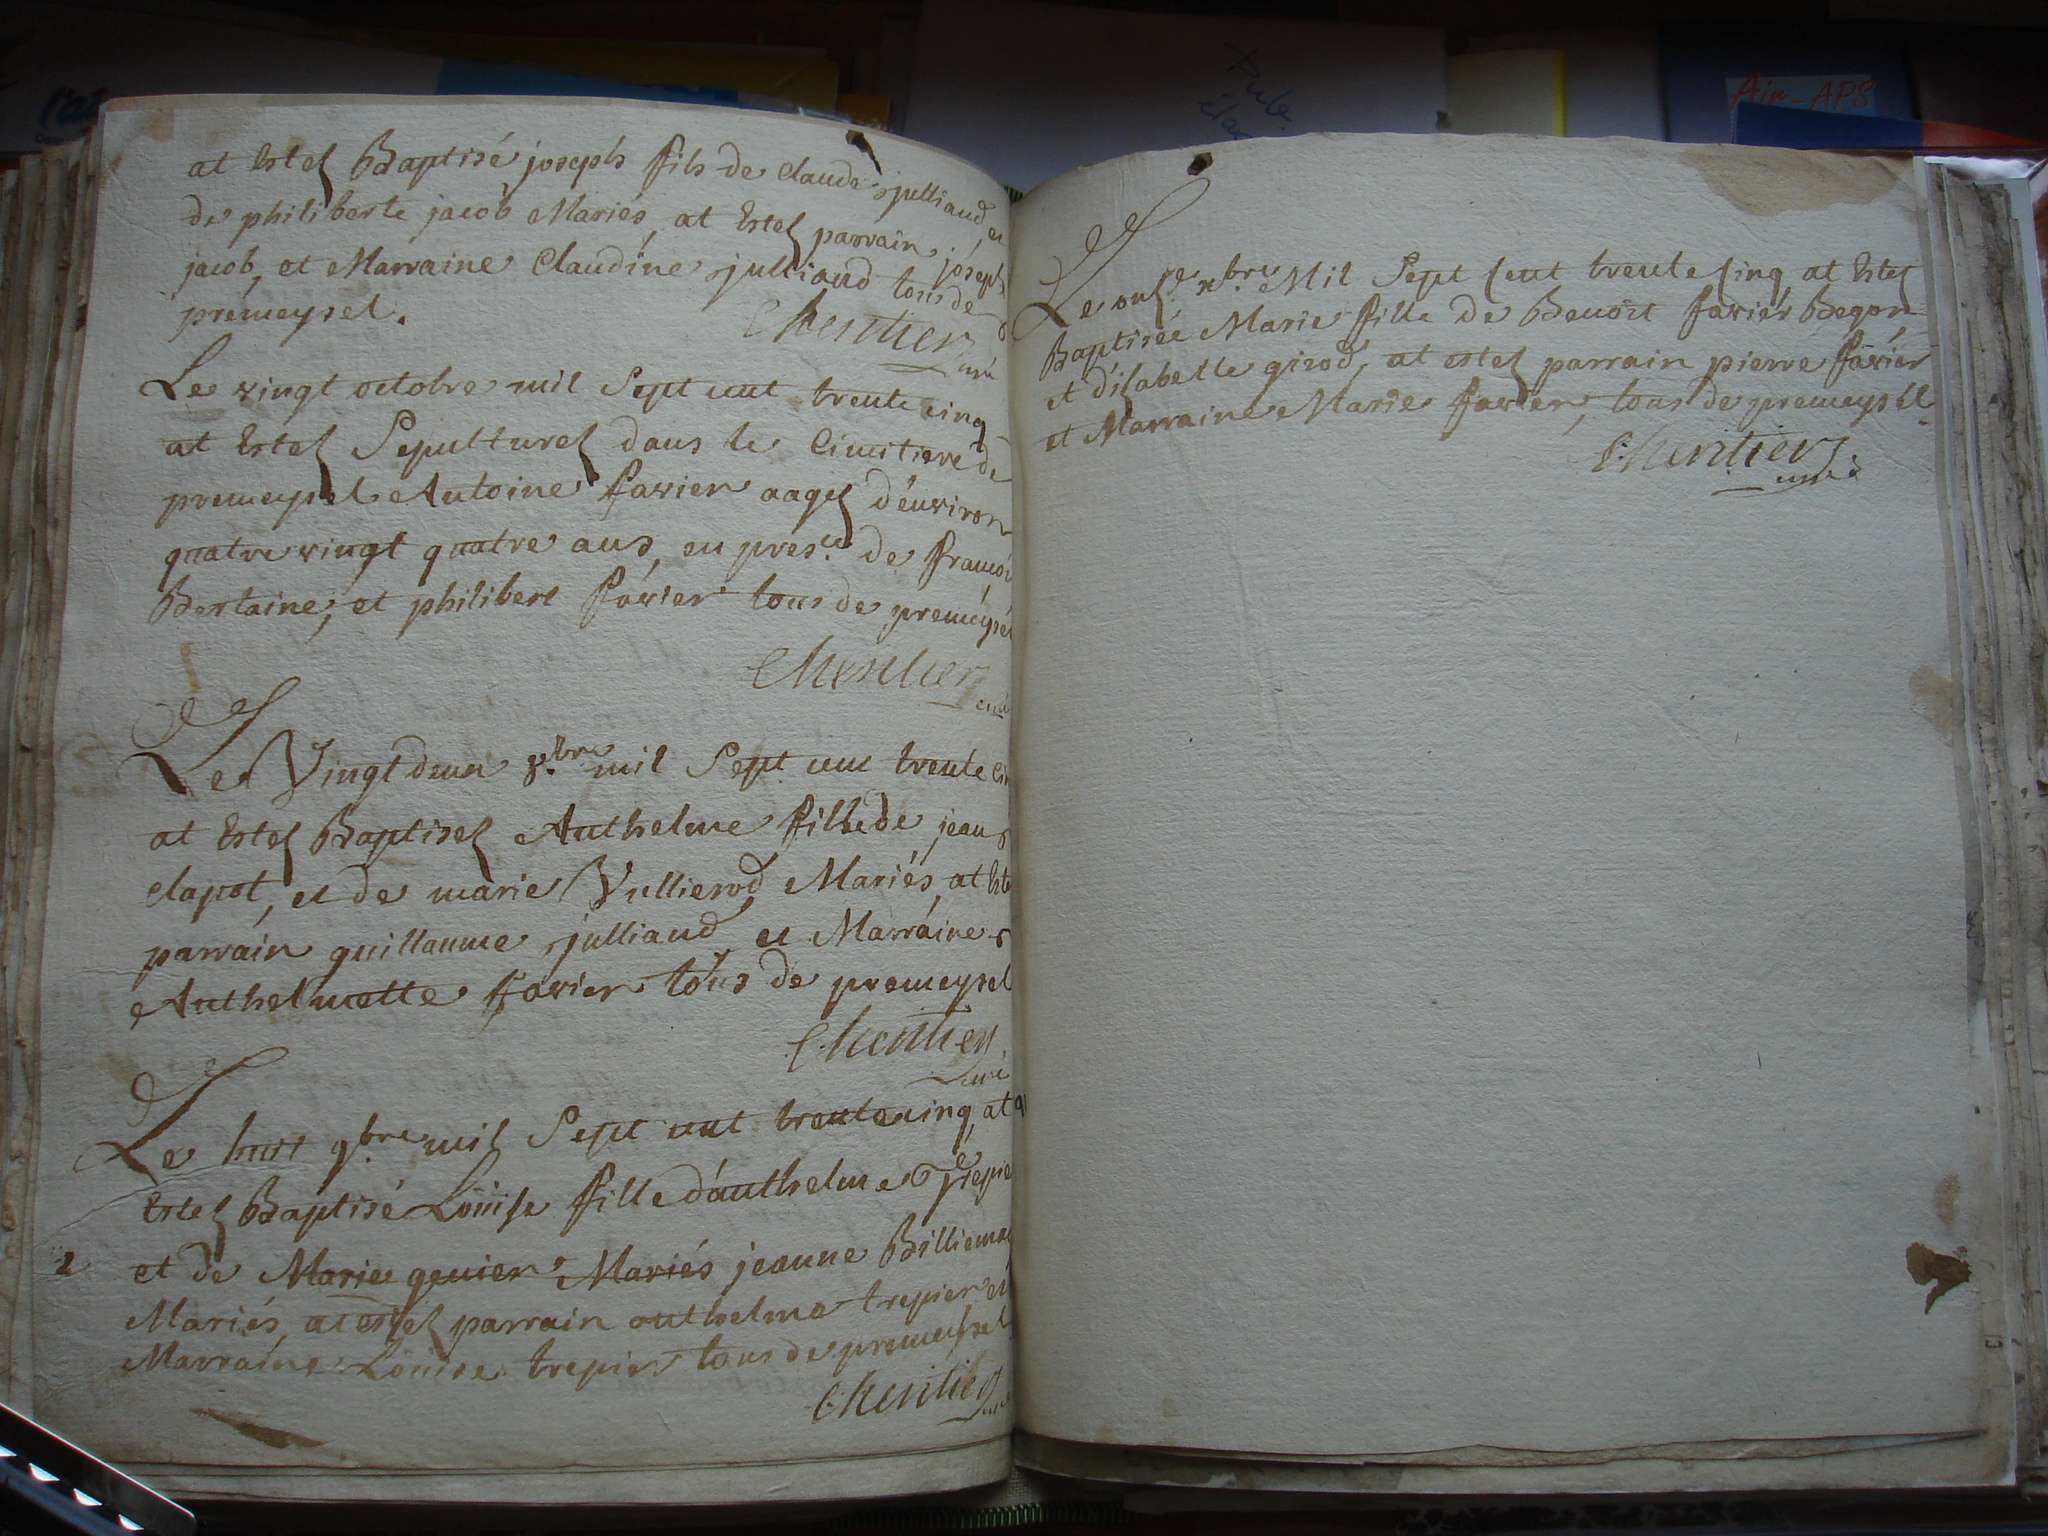 at Estez Baptisé joseph fils de Claude julliand, et
de philiberte jacob Mariés, at Estez parrain joseph
jacob, et Marraine Claudine julliand tous de
premeysel.
Lheritier
curé
Le vingt octobre mil Sept cent trente cinq
at Estez Sepulturez dans le Cimitiere de
premeysel Antoine favier aagez d'environ
quatre vingt quatre ans, en pres.ce de françoi
Bertaine, et philibert favier tous de premeysel
Lheritier
curé
Le Vingt deux 8.bre mil Sept cent trente cin
at Estez Baptisez Anthelme fille de jean
Clapot, et de marie Vullierod Mariés, at Este
parrain guillaume julliand et Marraine
Anthelmette favier tous de premeysel
Lheritier
curé
Le huit 9.bre mil Sept cent trente cinq, at
Estez Baptisé Louise fille d'anthelme Trepie
et de Marie genier Mariés jeanne Billiema
Mariés, at estez parrain anthelme trepier et
Marraine Louise trepier tous de premeysel
Lheritier
curé
Le onze x.bre Mil Sept Cent trente Cinq at Estez
Baptisée Marie fille de Benoit favier Begon
et d'isabelle girod, at estez parrain pierre favier
et Marraine Marie favier, tous de premeysel.
Lheritier
curé
Air-APS